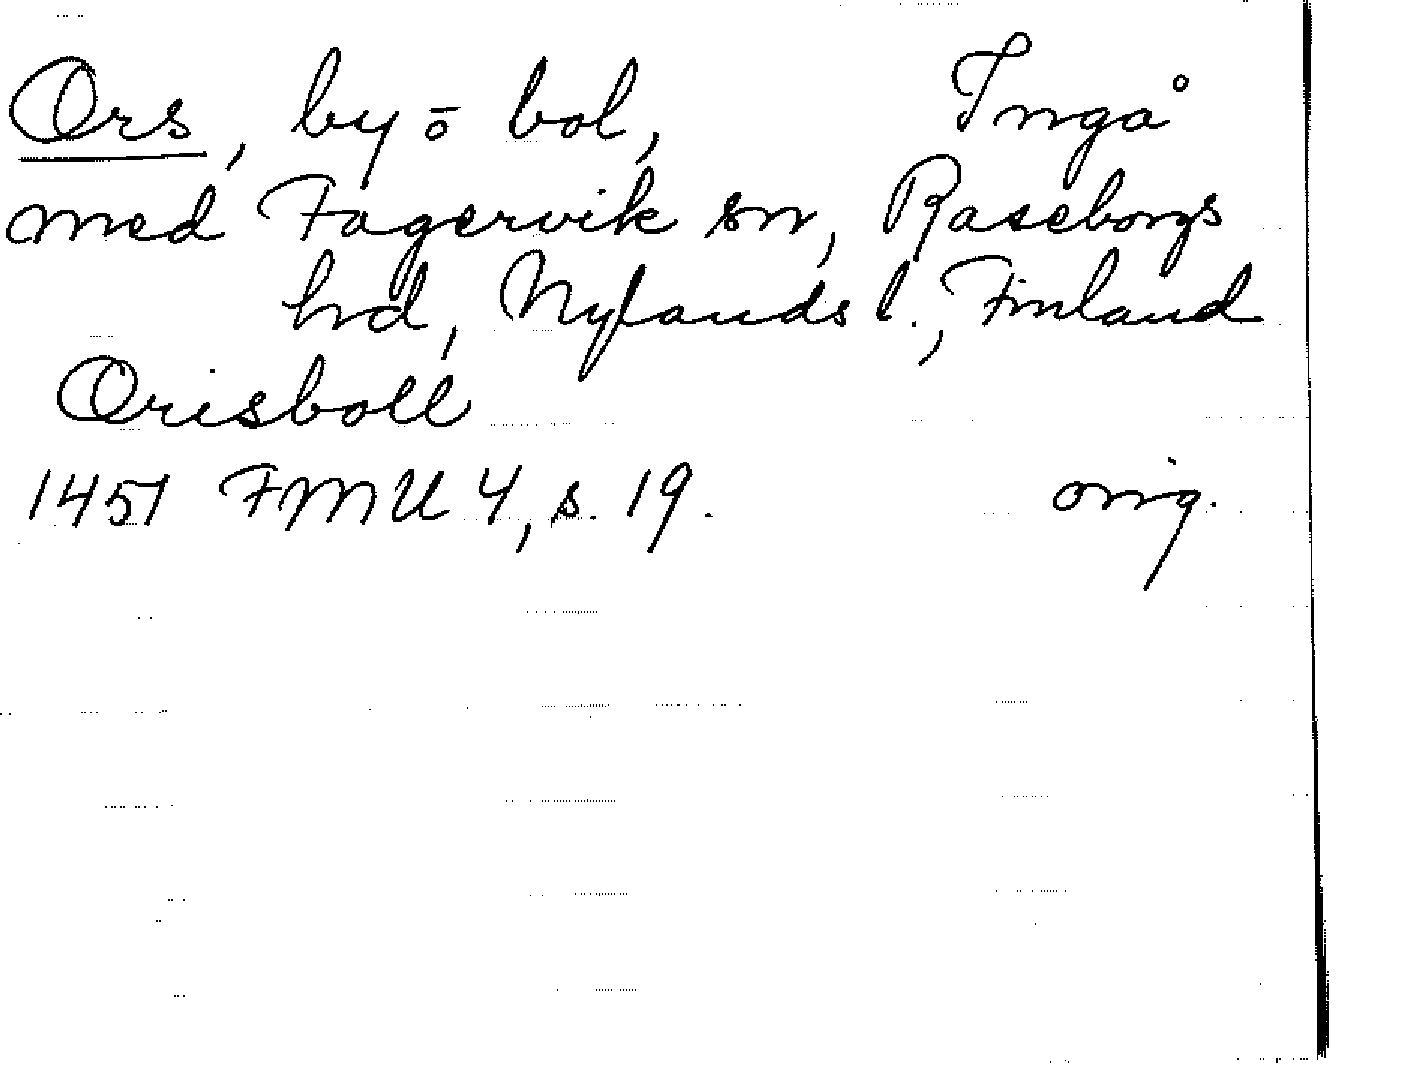 Ors, by o bol, Ingå
med Fagervik sn, Raseborgs
hd, Nylands l., Finland
Orisboll
1451 FMU 4, s. 19. orig.